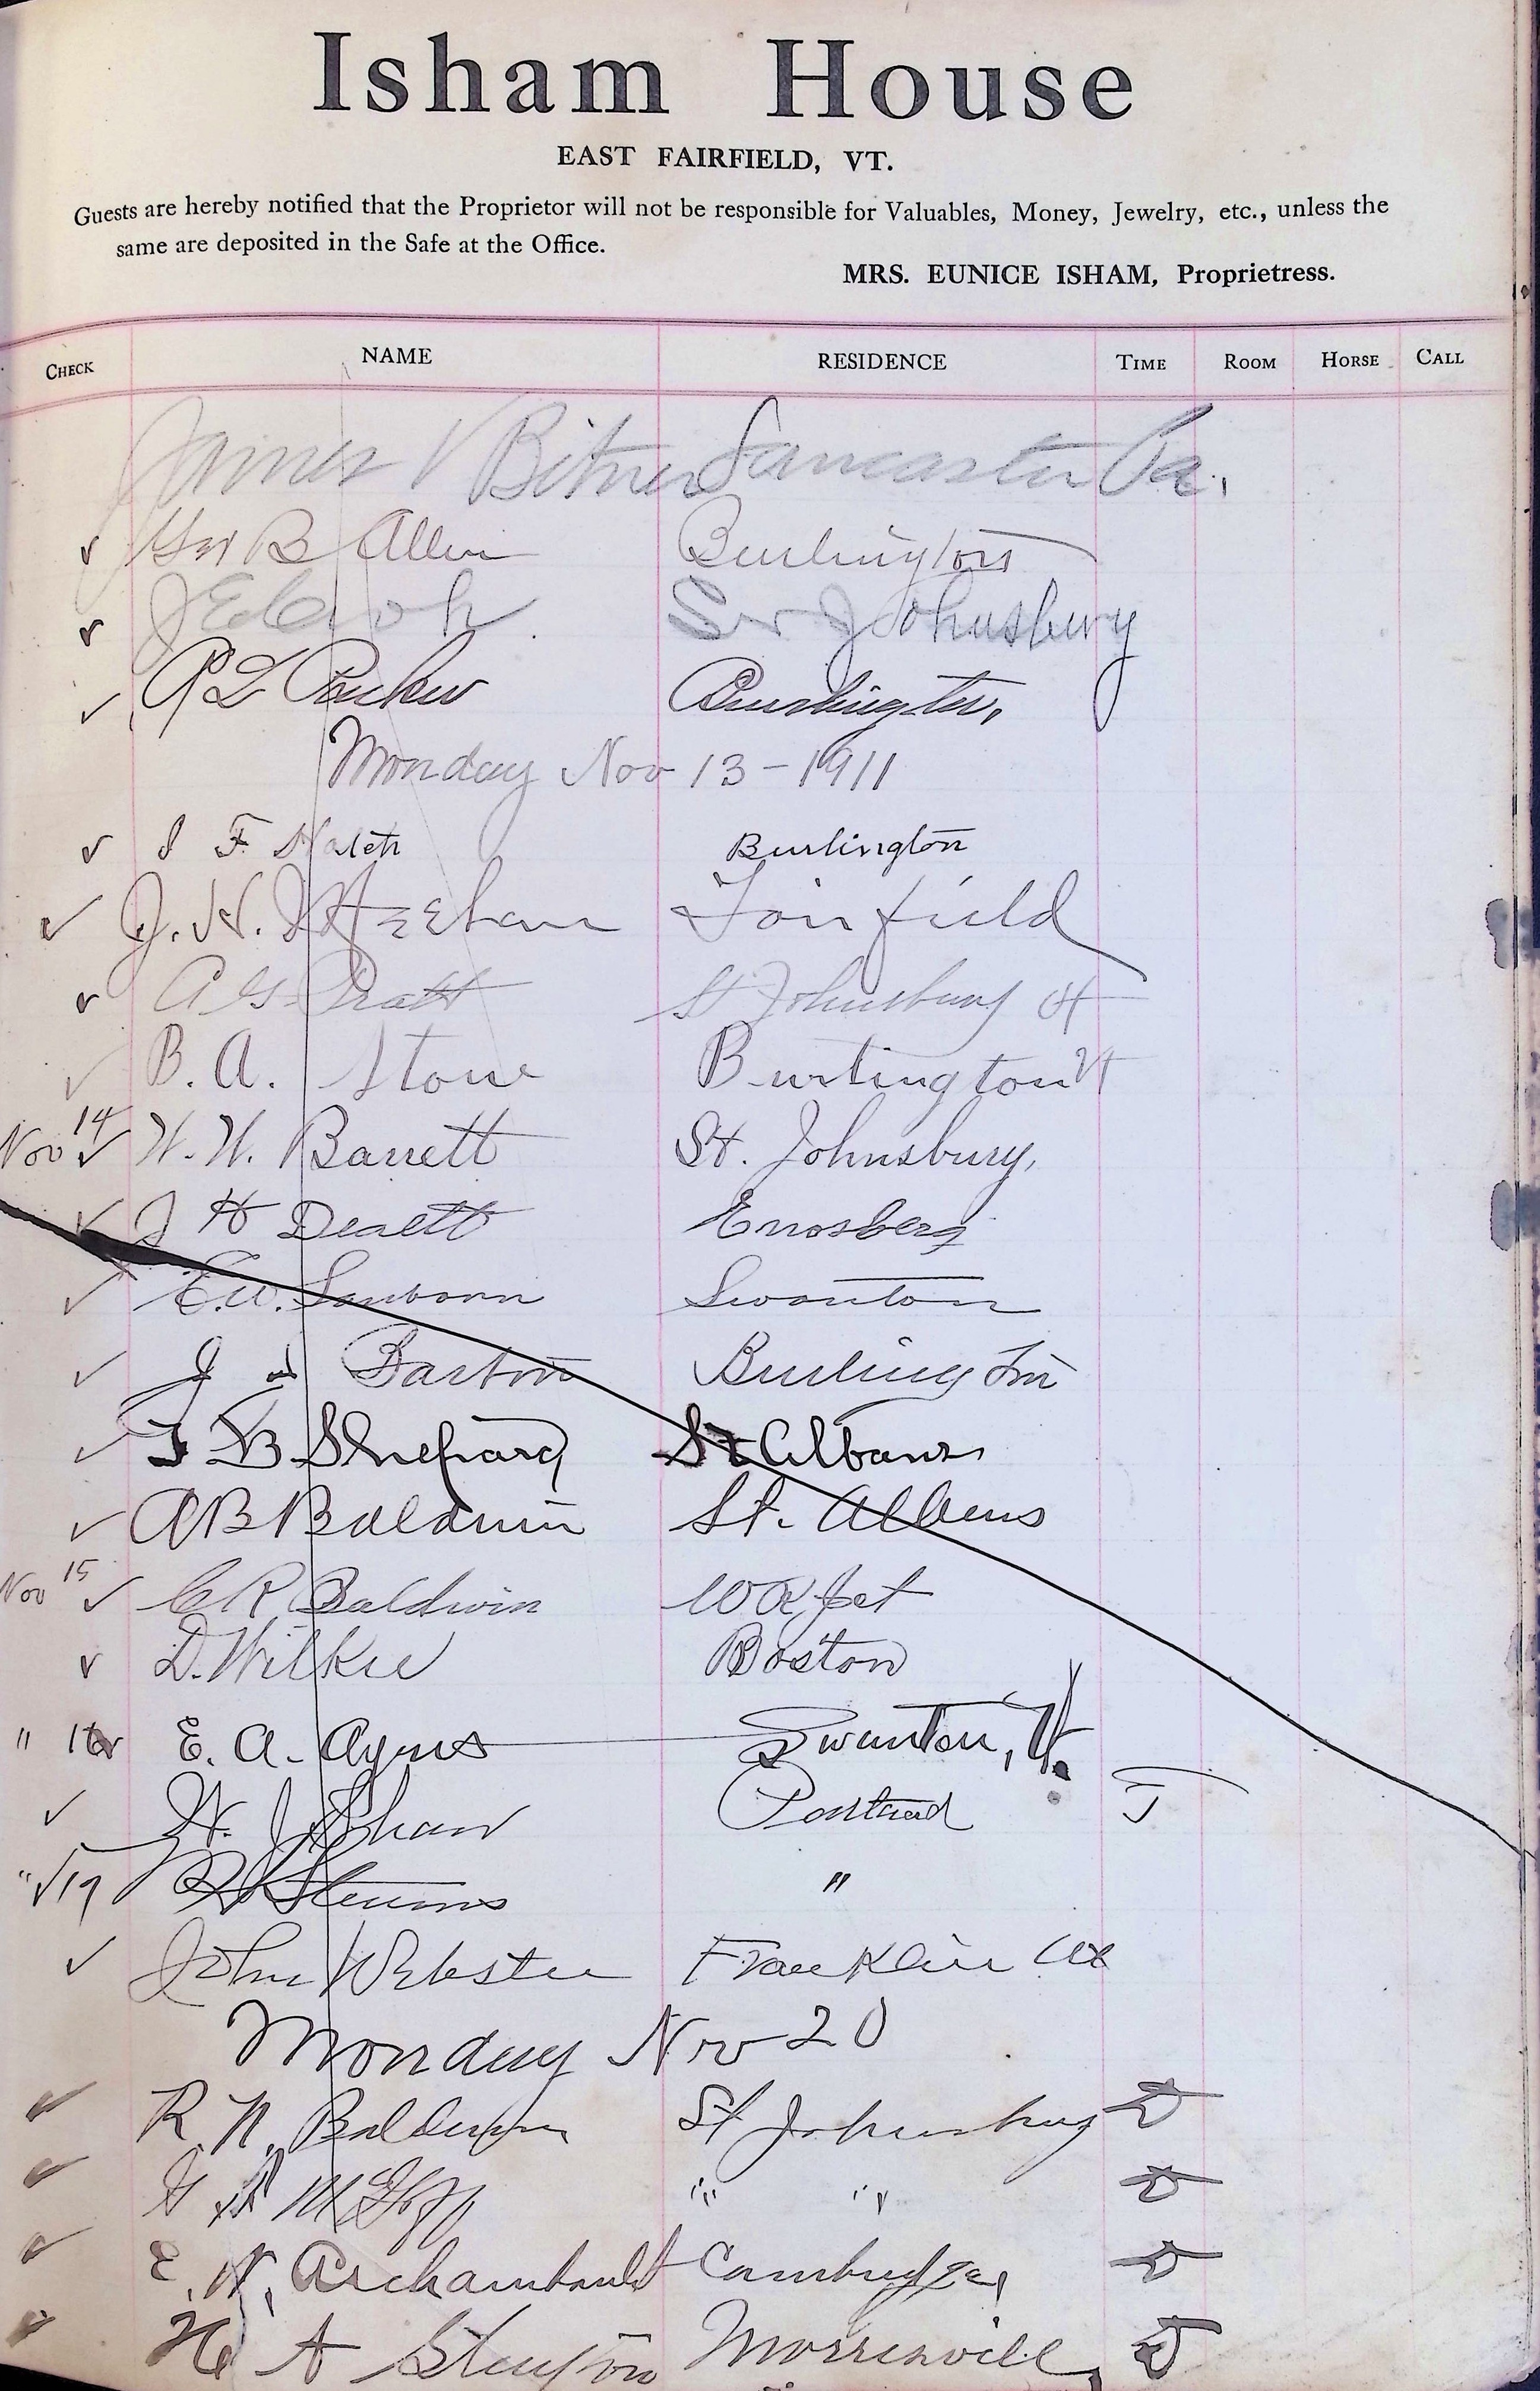 Isham House
EAST FAIRFIELD, VT.
Guests are hereby notified that the Proprietor will not be responsible for Valuables, Money, Jewelry, etc., unless the
same are deposited in the Safe at the Office.
MRS. EUNICE ISHAM, Proprietress.
CHECK NAME RESIDENCE TIME ROOM HORSE CALL
James V Bitner Lancaster Pa.
B Allen Burlington
J E St Johnsbury
Parker Burlington,
Monday Nov 13 - 1911
F Burlington
J. H. Fairfield
A G Pratt St Johnsbury Vt
B. A. Stone Burlington Vt
Nov 14 W. W. Barrett St. Johnsbury,
J H Enosberg
E. W. Sanborn Swanton
J Barton Burlington
B Shepard St Albans
A B Baldwin St. Albans
Nov 15 C R Baldwin
D. Wilkie Boston
" 16 E. A. Ayres Swanton, Vt.
J Shaw
" 17 Stearns "
John Webster Franklin
Monday Nov 20
R. N. Baldwin St Johnsbury
" "
E. N. Archambault Cambridge,
H A Morrisville